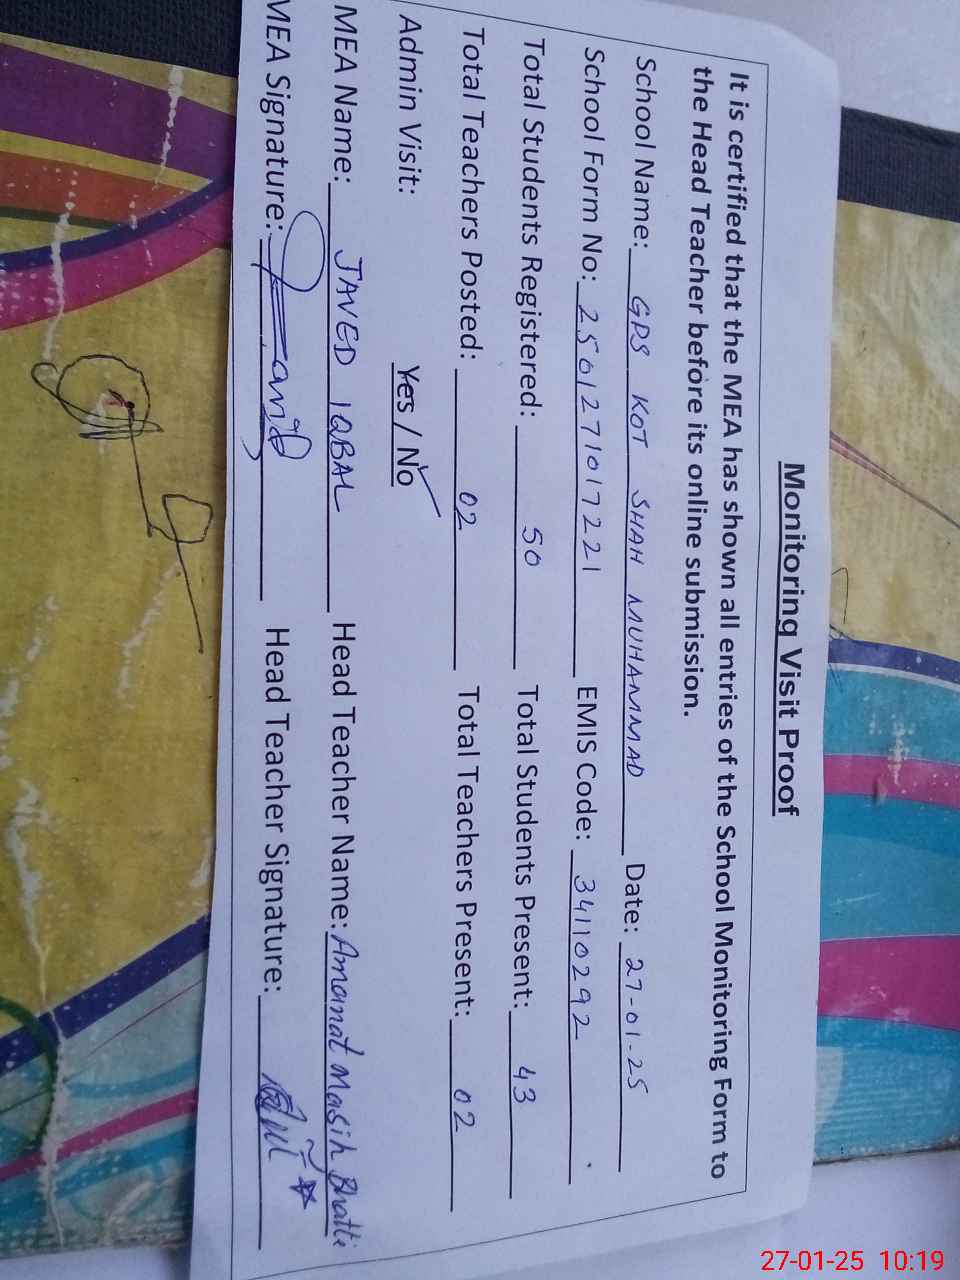 Monitoring Visit Proof
It is certified that the MEA has shown all entries of the School Monitoring Form to
the Head Teacher before its online submission.
School Name: GPS KOT SHAH MUHAMMAD Date: 27-01-25
School Form No: 2501271017221 EMIS Code: 34110292
Total Students Registered: 50 Total Students Present: 43
Total Teachers Posted: 02 Total Teachers Present: 02
Admin Visit: Yes / No
MEA Name: JAVED IQBAL Head Teacher Name: Amanat Masih Bhatti
MEA Signature: Head Teacher Signature:
27-01-25 10:19